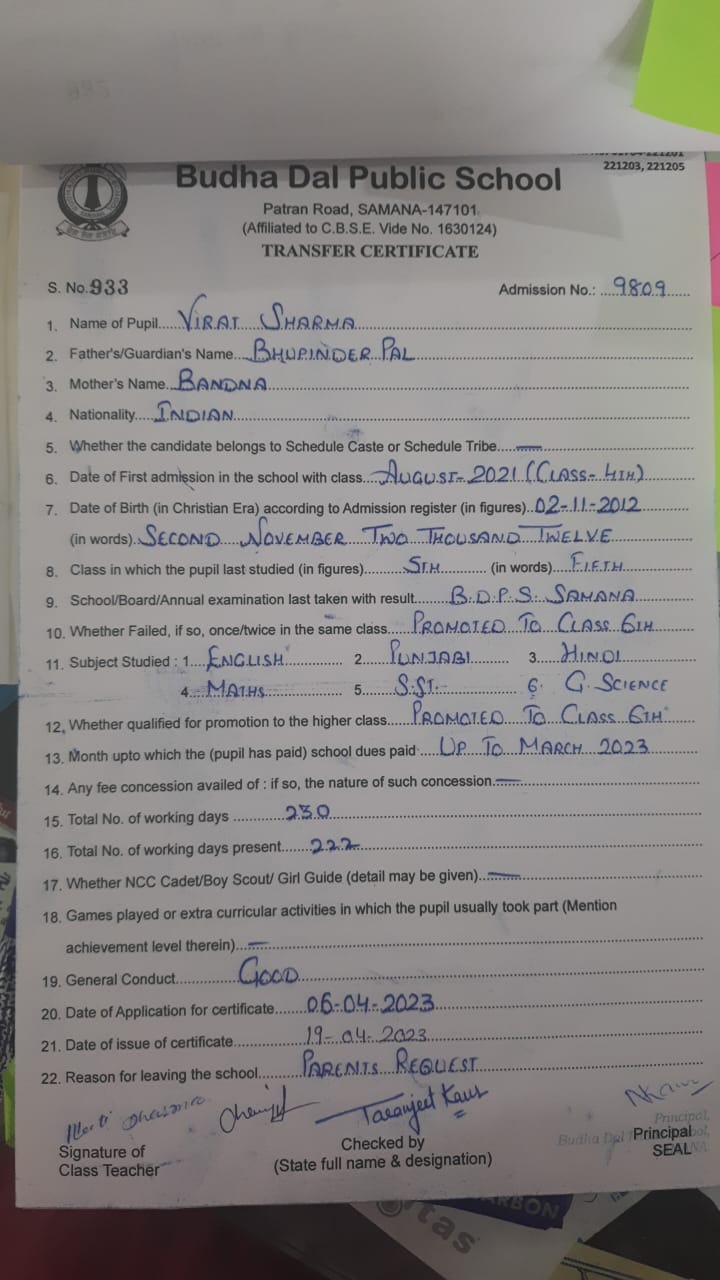 221203, 221205
Budha Dal Public School
Patran Road, SAMANA-147101
(Affiliated to C.B.S.E. Vide No. 1630124)
TRANSFER CERTIFICATE
S. No. 933 Admission No.: 9809
1. Name of Pupil VIRAT SHARMA
2. Father's/Guardian's Name BHUPINDER PAL
3. Mother's Name BANDNA
4. Nationality INDIAN
5. Whether the candidate belongs to Schedule Caste or Schedule Tribe —
6. Date of First admission in the school with class AUGUST-2021 (CLASS-4TH)
7. Date of Birth (in Christian Era) according to Admission register (in figures) 02-11-2012
(in words) SECOND NOVEMBER TWO THOUSAND TWELVE
8. Class in which the pupil last studied (in figures) 5TH (in words) FIFTH
9. School/Board/Annual examination last taken with result B.D.P.S. SAMANA
10. Whether Failed, if so, once/twice in the same class PROMOTED TO CLASS 6TH
11. Subject Studied : 1 ENGLISH 2 PUNJABI 3 HINDI
4 MATHS 5 S.ST. 6. G. SCIENCE
12. Whether qualified for promotion to the higher class PROMOTED TO CLASS 6TH
13. Month upto which the (pupil has paid) school dues paid UP TO MARCH 2023
14. Any fee concession availed of : if so, the nature of such concession —
15. Total No. of working days 230
16. Total No. of working days present 222
17. Whether NCC Cadet/Boy Scout/ Girl Guide (detail may be given) —
18. Games played or extra curricular activities in which the pupil usually took part (Mention
achievement level therein) —
19. General Conduct GOOD
20. Date of Application for certificate 06-04-2023
21. Date of issue of certificate 19-04-2023
22. Reason for leaving the school PARENTS REQUEST
Taranjeet Kaur
Principal,
Signature of Checked by Budha Dal Principal
Class Teacher (State full name & designation) SEAL